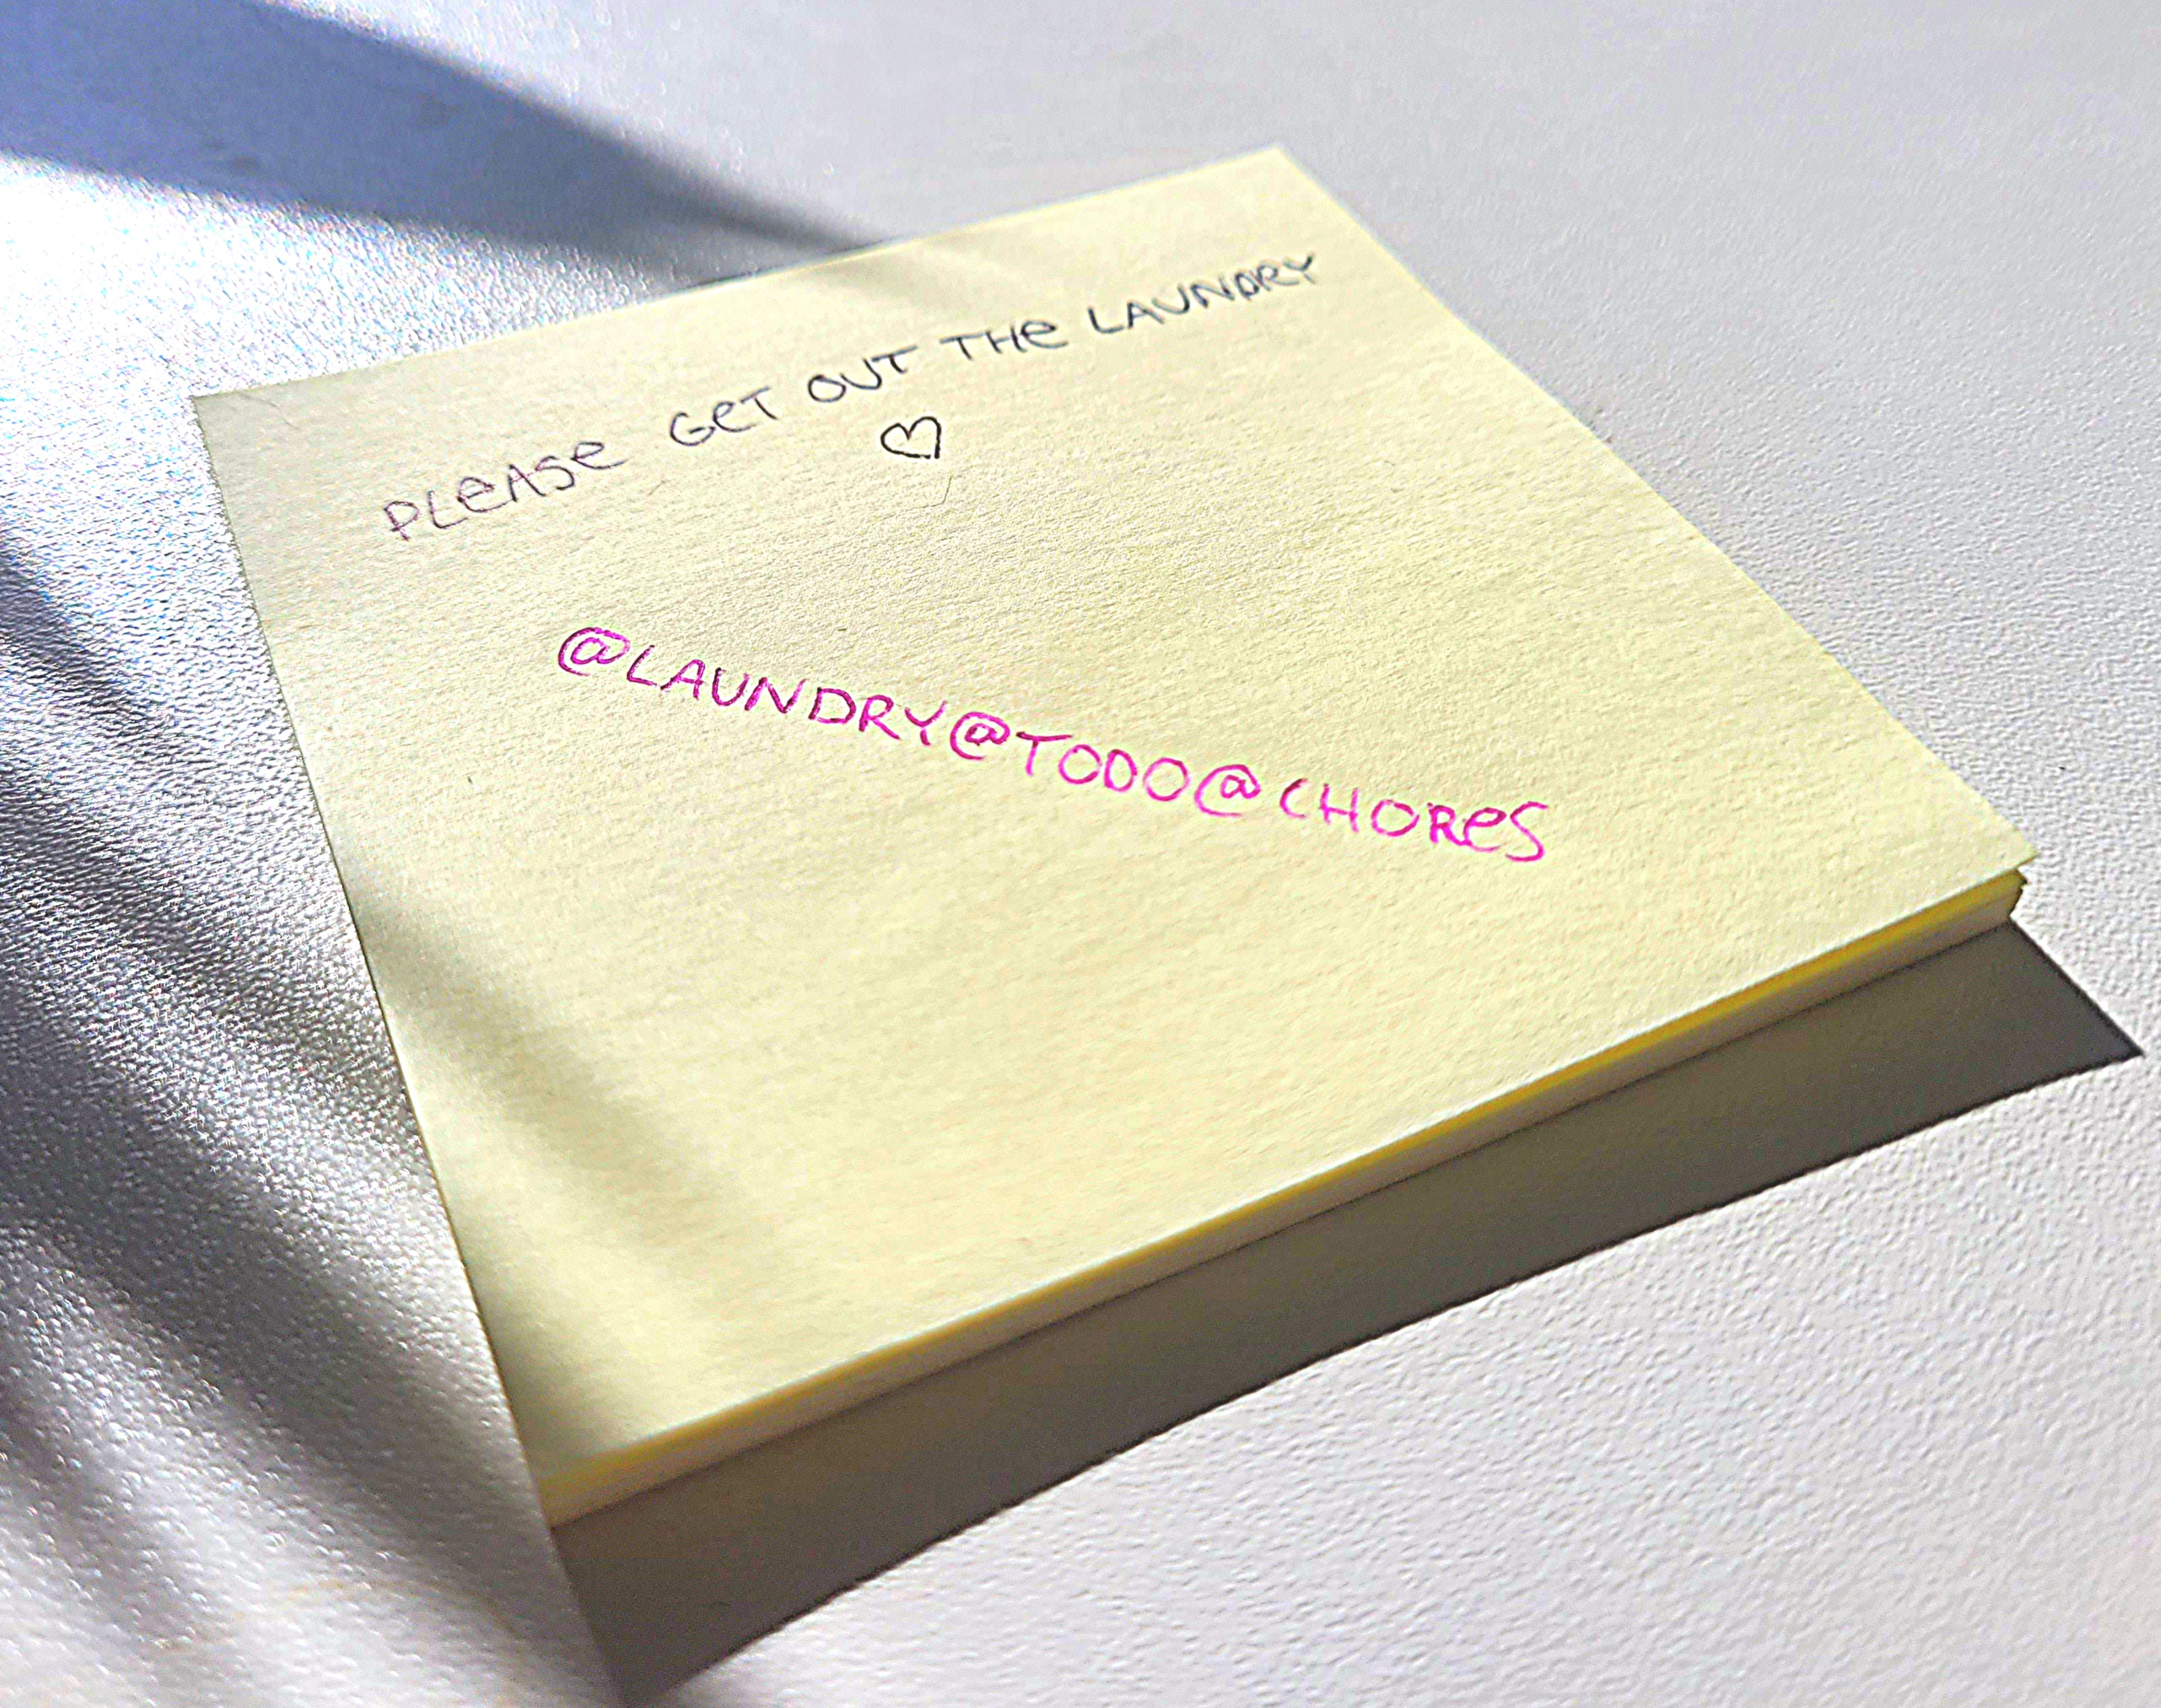 PLeASe GeT OUT THe LAUNDRY
♡
@LAUNDRY@TODO@CHOReS